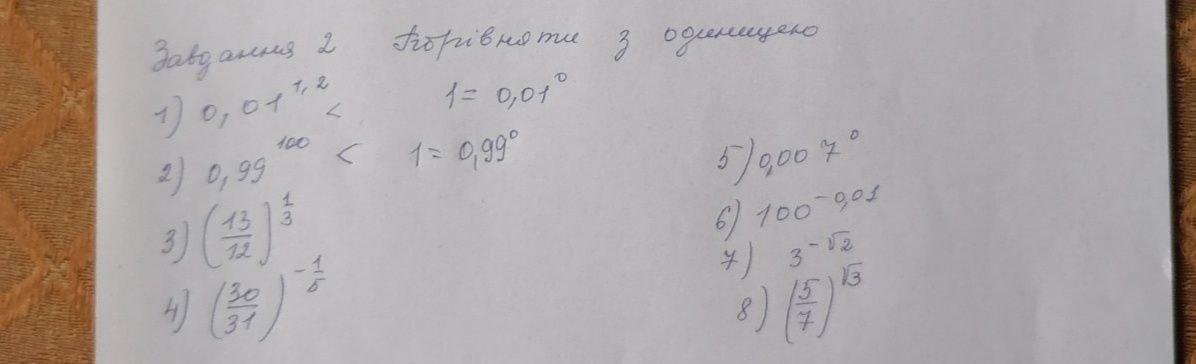 Завдання 2 Порівняти з одиницею
1) 0,01^{1,2} < 1 = 0,01^0
2) 0,99^{100} < 1 = 0,99^0
3) (13/12)^{1/3}
4) (30/31)^{-1/5}
5) 0,007^0
6) 100^{-0,01}
7) 3^{-√2}
8) (5/7)^{√3}